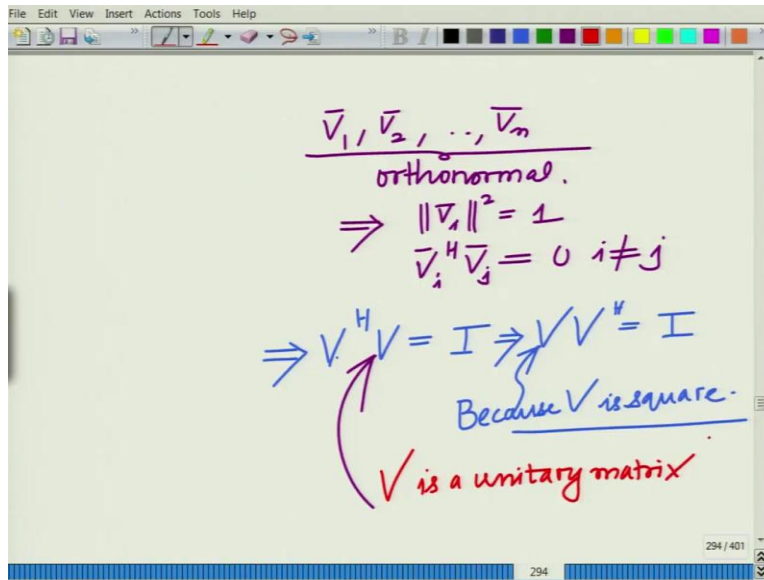 File Edit View Insert Actions Tools Help
B I
V̄₁, V̄₂, .., V̄ₙ
orthonormal.
⇒ ||V̄ᵢ||² = 1
V̄ᵢᴴ V̄ⱼ = 0 i≠j
⇒ VᴴV = I ⇒ VVᴴ = I
Because V is square.
V is a unitary matrix
294/401
294